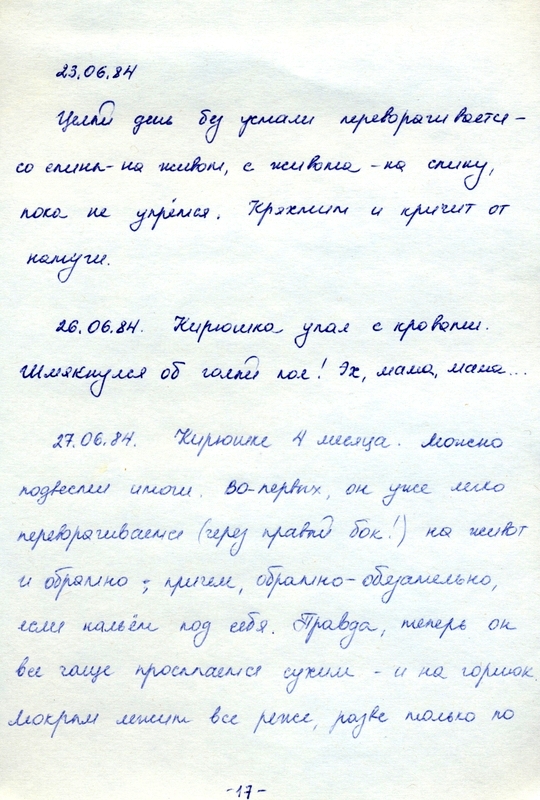 23.06.84
Целый день без устали переворачивается -
со спины - на живот, с живота - на спину,
пока не упрётся. Кряхтит и кричит от
натуги.
26.06.84. Кирюшка упал с кровати.
Шмякнулся об голый пол! Эх, мама, мама...
27.06.84. Кирюшке 4 месяца. Можно
подвести итоги. Во-первых, он уже легко
переворачивается (через правый бок!) на живот
и обратно; причем, обратно - обязательно,
если нальёт под себя. Правда, теперь он
все чаще просыпается сухим - и на горшок.
Мокрым лежит все реже, разве только по
-17-